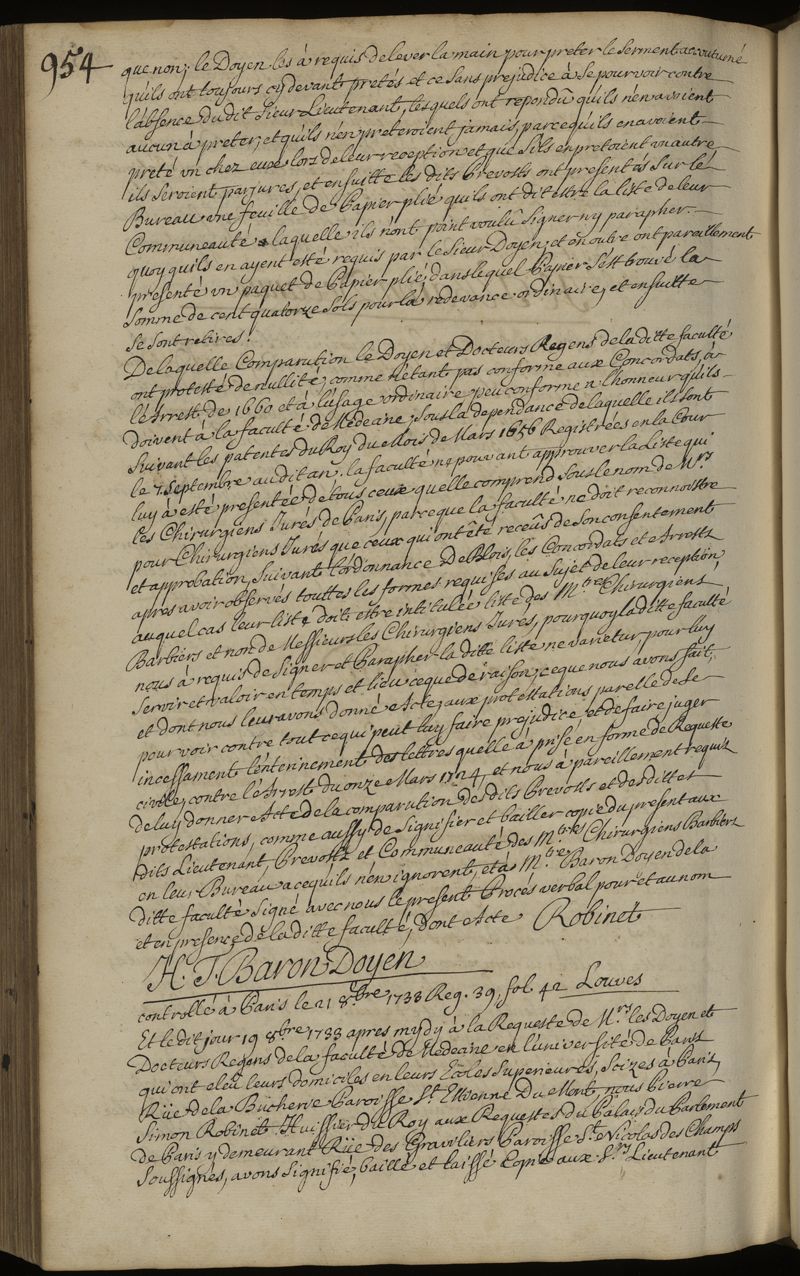 954
que non; le Doyen les à requis de lever la main pour preter le Serment accoutumé
qu'ils ont toujours cy devant pretés et ce sans prejudice à se pourvoir contre
l'absence du dit Sieur Lieutenant, lesquels ont repondû qu'ils n'en avoient
aucun à preter, et qu'ils n'en preteroient jamais, parcequ'ils en avoient
preté un chez eux lors de leur reception et que s'ils en pretoient un autre
ils seroient parjures, et ensuitte les dits Prevosts ont presentés sur le
Bureau une feuille de Papier plié qu'ils ont dit estre la liste de leur
Communeauté à laquelle ils n'ont point voulû signer ny parapher
quoy qu'ils en ayent esté requis par le Sieur Doyen, et en outre ont pareillement
presenté un paquet de Papier plié, dans lequel Papier s'est trouvé la
Somme de cent quatorze Sols pour la redevance ordinaire, et ensuitte
se sont retirés.
De laquelle Comparution le Doyen et Docteurs Regens de la ditte faculté
ont protesté de nullité, comme n'étant pas conforme aux Concordats, à
l'Arrest de 1660 et à l'usage ordinaire peu conforme à l'honneur qu'ils
doivent à la faculté de Medecine, sous la dependance de laquelle ils sont
suivant les patentes du Roy du Mois de Mars 1656 Registrées en la Cour
le 7 Septembre au dit an. la faculté ne pouvant approuver la Liste qui
luy à esté presentée de tous ceux quelle comprend sous le nom de Mrs
les Chirurgiens Jurés de Paris, parceque la faculté ne doit reconnoistre
pour Chirurgiens Jurés que ceux qui ont été receûs de son consentement
et approbation, suivant l'ordonnance de Blois, les Concordats et Arrests
apres avoir observés touttes les formes requises au Sujet de leur reception,
auquel cas leur liste doit estre intitulée liste des Mtres Chirurgiens
Barbiers et non de Messieurs les Chirurgiens Jurés, pourquoy la ditte faculté
nous à requis de signer et Parapher la ditte liste ne varietur pour luy
Servir et valoir en temps et lieu ceque de raison; ceque nous avons fait,
et dont nous leur avons donné Acte, aux protestations par elle de se
pourvoir contre tout ce qui peut luy faire prejudice, et de faire juger
incessament l'enterinement des lettres quelle à prise en forme de Requeste
civile, contre l'Arrest du onze Mars 1724, et nous à pareillement requis
de luy donner Acte de la comparution des dits Prevosts et des dittes
protestations, comme aussy de Signifier et bailler copie du present aux
dits Lieutenant, Prevosts et Communeauté des Mtres Chirurgiens Barbiers
en leur Bureau a cequ'ils n'en ignorent, et à Mtre Baron Doyen de la
ditte faculté Signé avec nous le present Procés verbal pour et au nom
et en presence de la ditte faculté, dont Acte Robinet
H. T. Baron Doyen
controllé à Paris le 21 8bre 1733 Reg. 39, fol. 42 Louves
Et le dit jour 19 8bre 1733 apres mydy à la Requeste de Mrs les Doyen et
Docteurs Regens de la faculté de Medecine en l'université de Paris
qui ont eleu leurs domiciles en leurs Ecoles Superieures, Scizes à Paris,
Rüe de la Bucherie Paroisse St Estienne Du Mont, nous Pierre
Simon Robinet Huissier du Roy aux Requestes du Palais du Parlement
de Paris y demeurant Rüe des Gravilliers Paroisse St Nicolas des Champs
Soussignés, avons Signifié, baillé et laissé Copie aux Srs Lieutenant